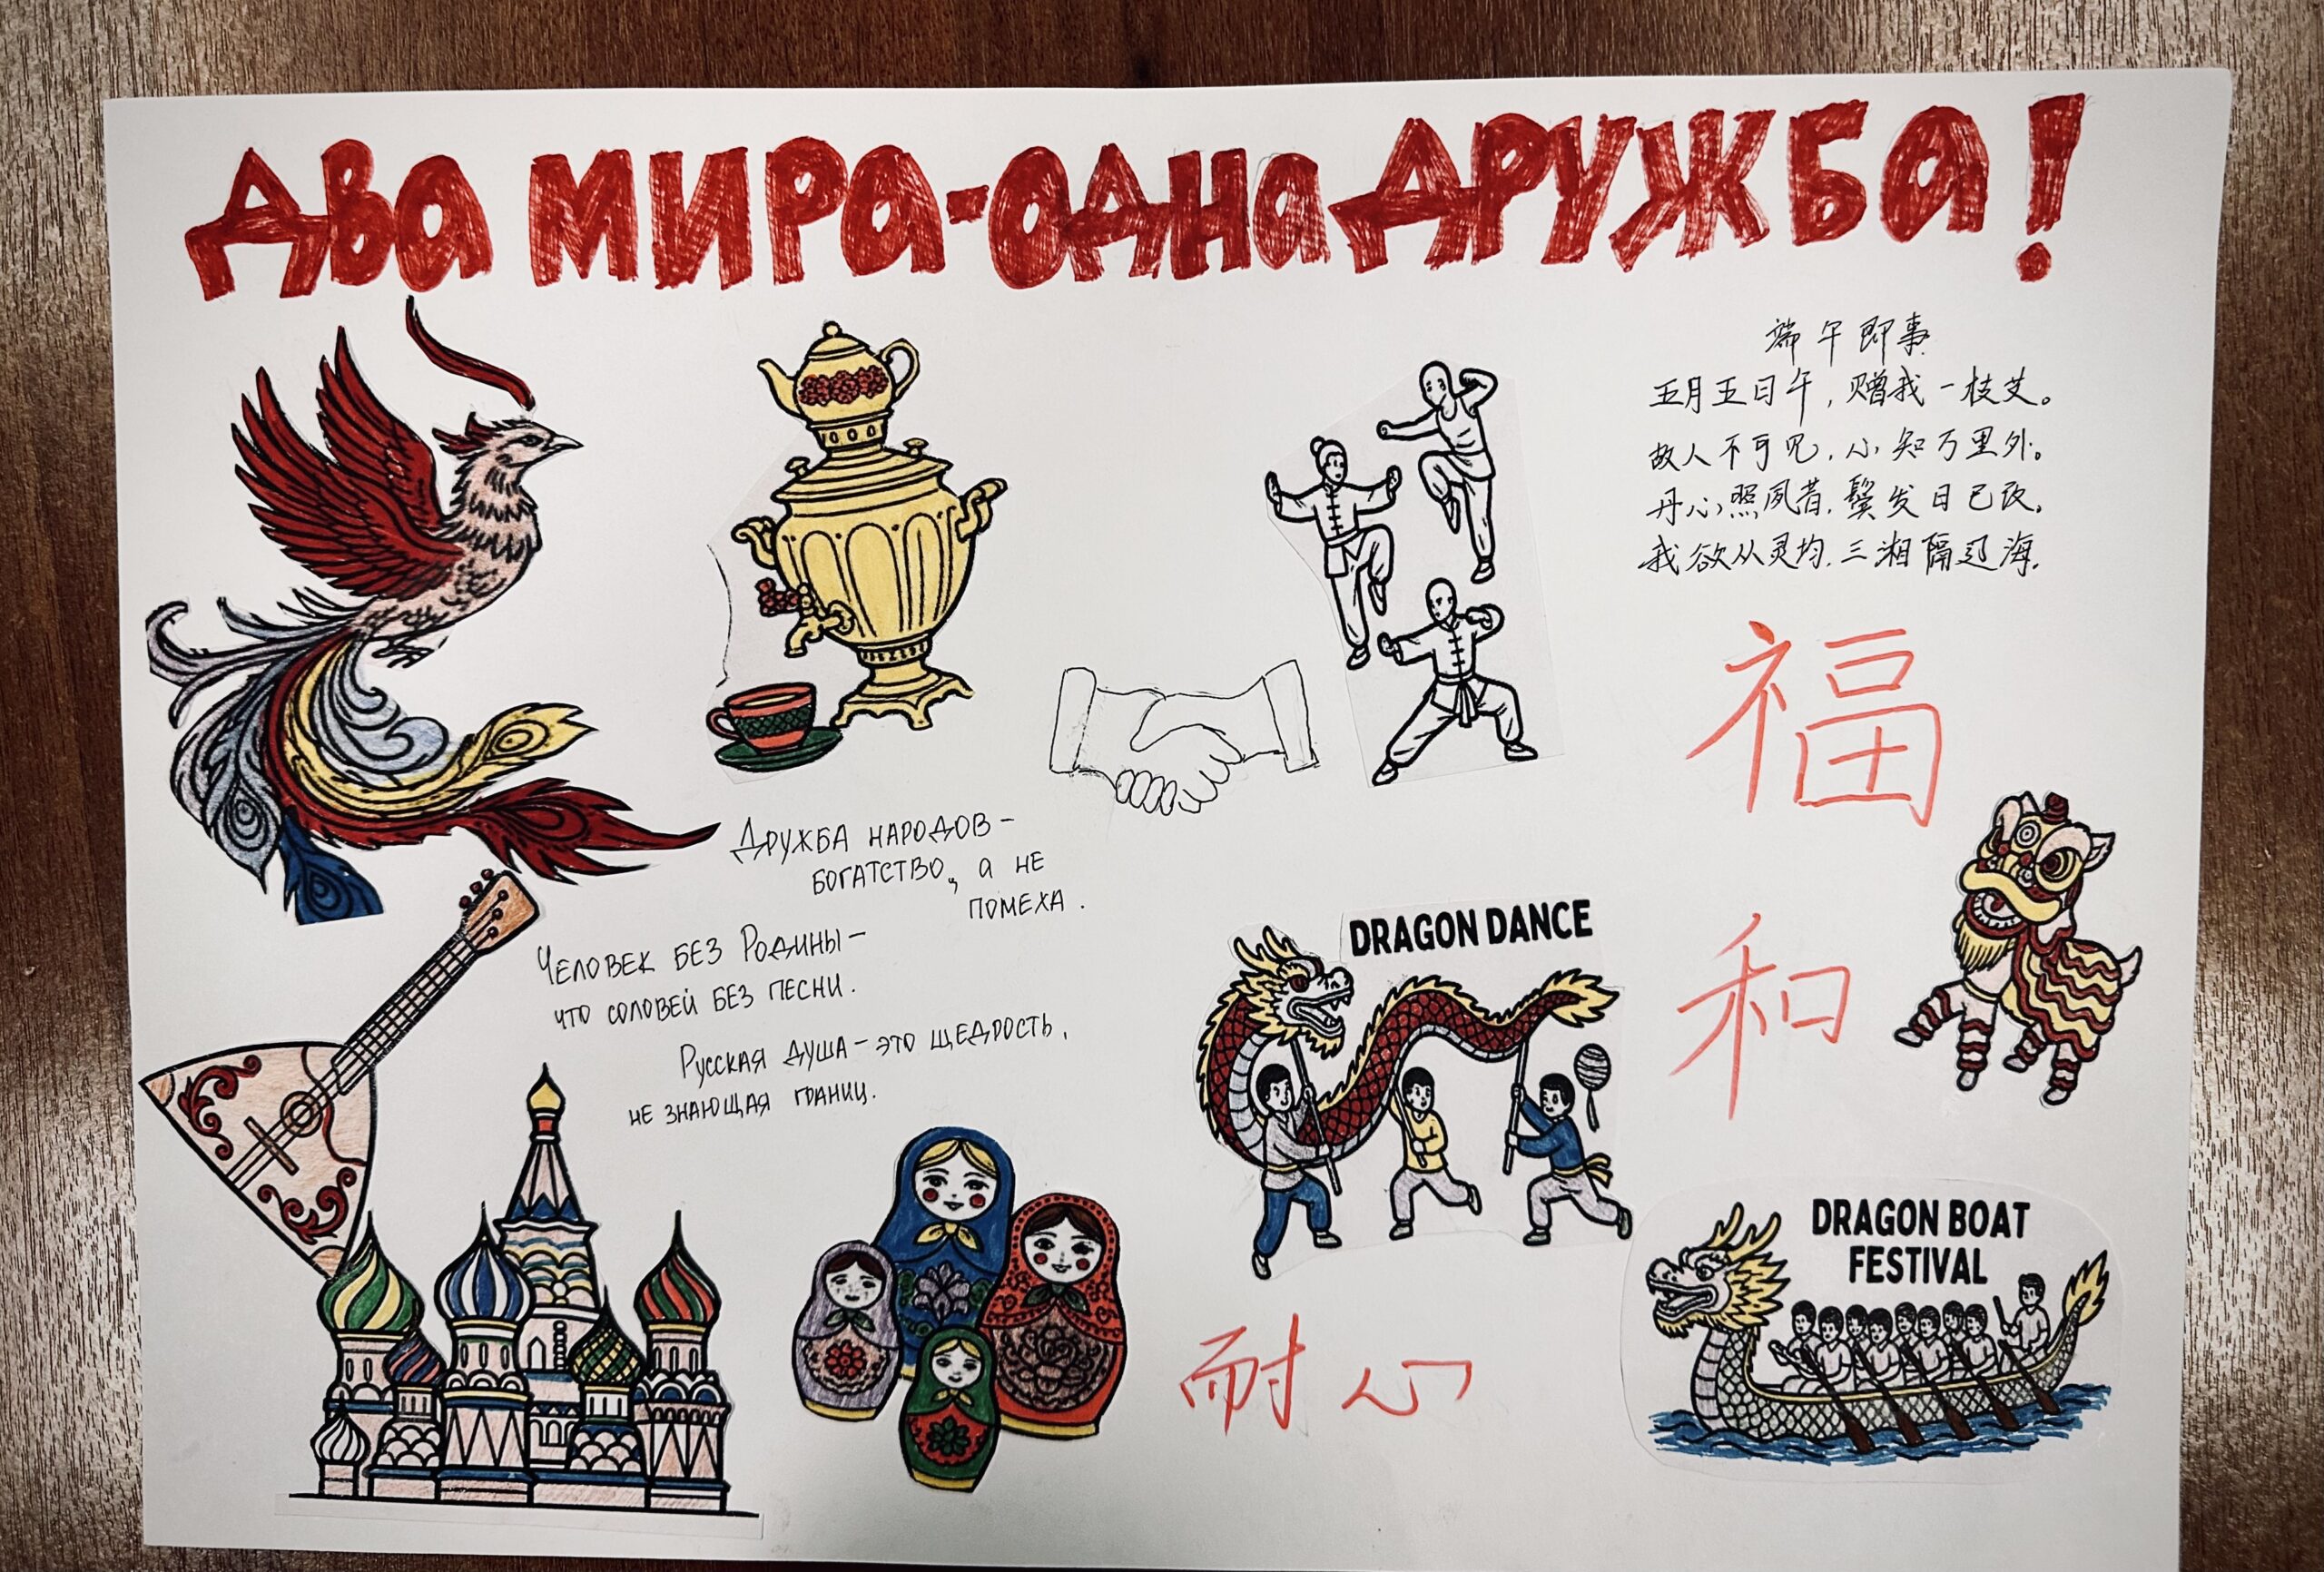 ДВА МИРА-ОДНА ДРУЖБА!
端午即事
五月五日午,赠我一枝艾。
故人不可见,小知万里外。
丹心照夙昔,鬓发日已改.
我欲从灵均.三湘隔辽海.
福
和
ДРУЖБА НАРОДОВ –
БОГАТСТВО, А НЕ
ПОМЕХА.
ЧЕЛОВЕК БЕЗ РОДИНЫ –
ЧТО СОЛОВЕЙ БЕЗ ПЕСНИ.
РУССКАЯ ДУША – ЭТО ЩЕДРОСТЬ,
НЕ ЗНАЮЩАЯ ГРАНИЦ.
DRAGON DANCE
耐心
DRAGON BOAT
FESTIVAL